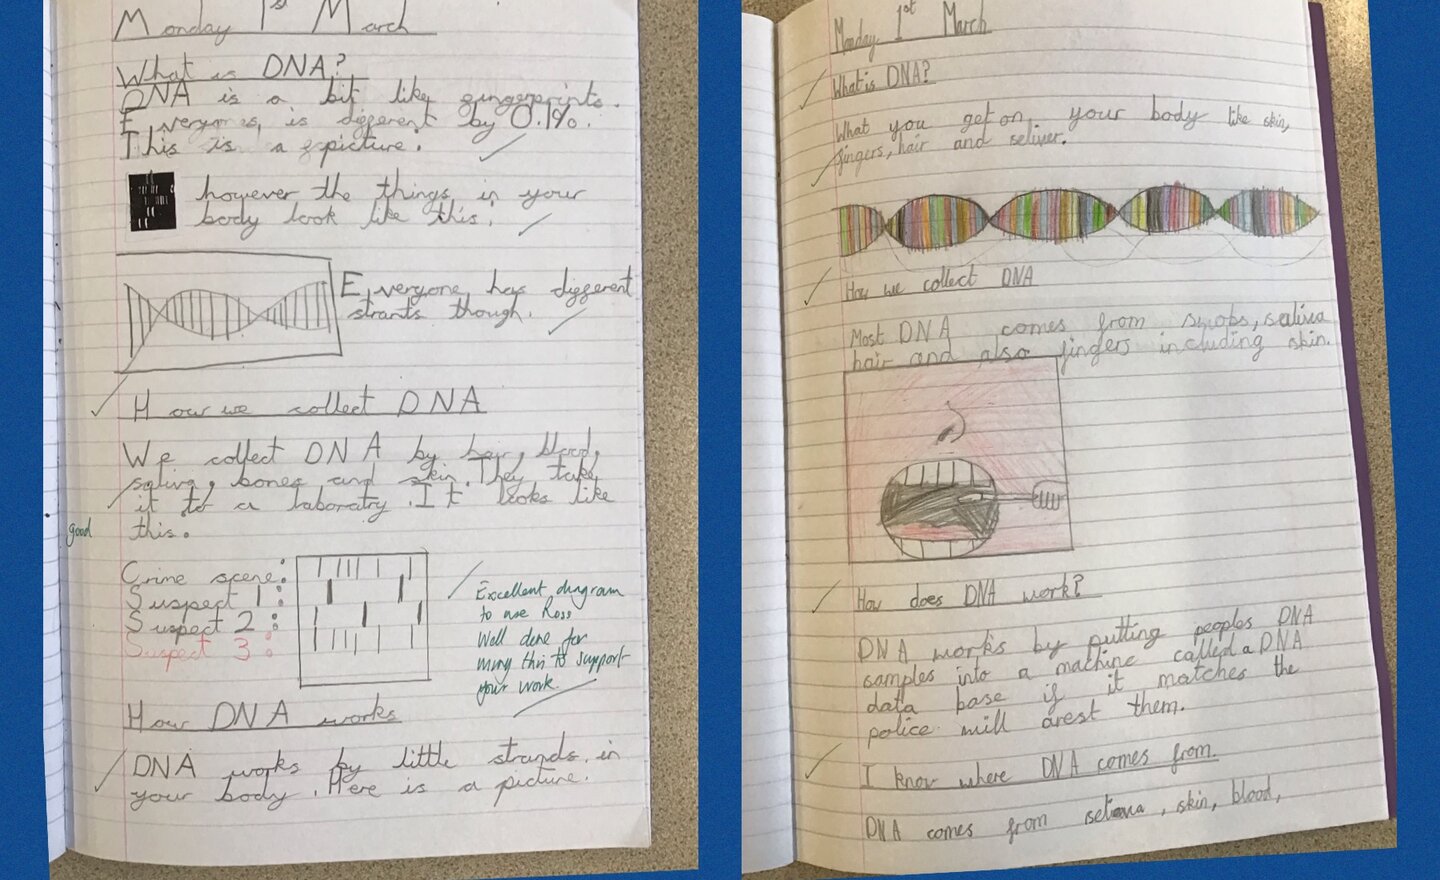 Monday 1st March
What is DNA?
DNA is a bit like fingerprints.
Everyones, is different by 0.1%.
This is a picture.
however the things in your
body look like this.
Everyone has different
strants though.
How we collect DNA
We collect DNA by hair, blood,
saliva, bones and skin. They take
it to a laboratry. It looks like
this.
good
Crime scene:
Suspect 1:
Suspect 2:
Suspect 3:
Excellent diagram
to use Ross
Well done for
using this to support
your work.
How DNA works
DNA works by little strands in
your body. Here is a picture.
Monday 1st March
What is DNA?
What you get on your body like skin,
fingers, hair and seliver.
How we collect DNA
Most DNA comes from swobs, saliva
hair and also fingers including skin.
How does DNA work?
DNA works by putting peoples DNA
samples into a machine called a DNA
data base if it matches the
police will arest them.
I know where DNA comes from.
DNA comes from skin, blood,